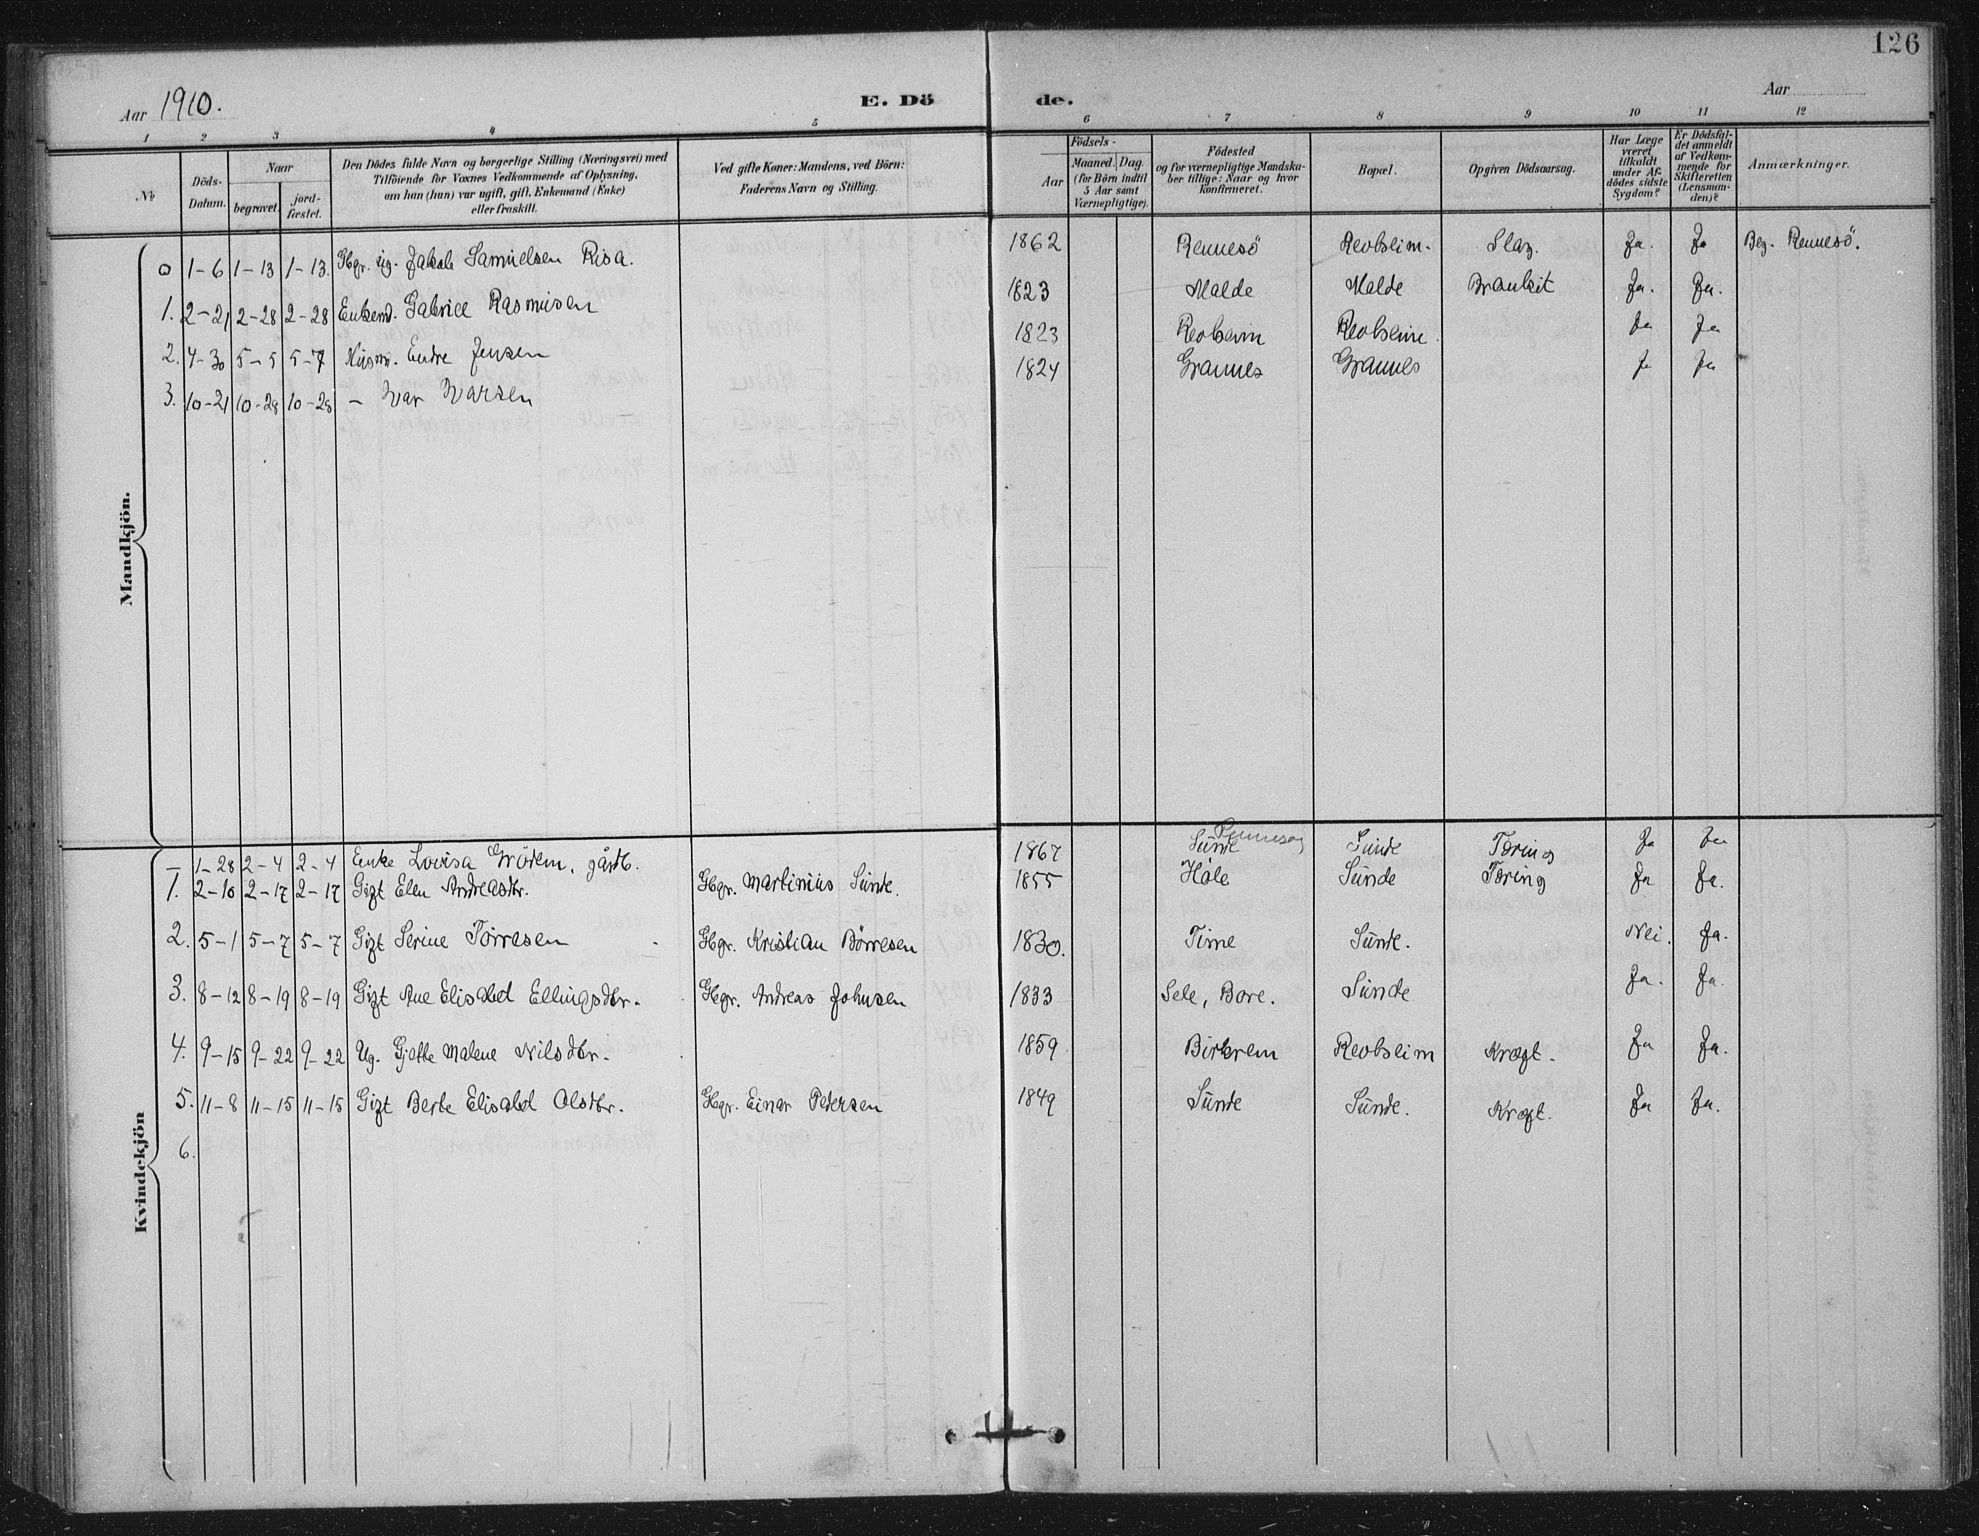 126
Aar 1910.
E. Dö de.
Aar
1 2 3 4 5 6 7 8 9 10 11 12
№
Döds-Datum.
Naar
begravet.
jord-fæstet.
Den Dödes fulde Navn og borgerlige Stilling (Næringsvei) med
Tilföiende for Voxnes Vedkommende af Oplysning,
om han (hun) var ugift, gift, Enkemand (Enke)
eller fraskilt.
Ved gifte Koner: Mandens, ved Börn:
Faderens Navn og Stilling.
Födsels-
Aar
Maaned. Dag.
(for Börn indtil
5 Aar samt
Værnepligtige).
Födested
og for værnepligtige Mandska-
ber tillige: Naar og hvor
konfirmeret.
Bopæl.
Opgiven Dödsaarsag.
Har Læge
været
tilkaldt
under Af-
dödes sidste
Sygdom?
Er Dödsfal-
det anmeldt
af Vedkom-
mende for
Skifteretten
(Lensman-
den)?
Anmærkninger.
Mandkjön.
0 1-6 1-13 1-13. Gbgr. ug. Jakob Samuelsen Risa. 1862 Rennesö Revheim. Slag. Ja. Ja Beg. Rennesö.
1. 2-21 2-28 2-28 Enkemd. Gabriel Rasmusen 1823 Malde Malde Bronkit Ja. Ja.
2. 4-30 5-5 5-7 Husm. Endre Jensen 1823 Revheim Revheim. Ja Ja
3. 10-21 10-28 10-28 - Ivar Ivarsen 1824 Grannes Grannes Ja Ja
Kvindekjön
- 1-28 2-4 2-4 Enke Lovisa Grödem, gårdb. 1867 Sunde Sunde Tæring Ja Ja
1. 2-10 2-17 2-17 Gift Elen Andreasdtr. Gbgr. Martinius Sunde. 1855 Höle Sunde Tæring Ja Ja.
2. 5-1 5-7 5-7 Gift Serine Törresen Gbgr. Kristian Börresen 1830. Time Sunde. Nei. Ja.
3. 8-12 8-19 8-19 Gift Ane Elisabet Ellingsdtr. Gbgr. Andreas Johnsen 1833 Sele, Bore. Sunde Ja. Ja.
4. 9-15 9-22 9-22 Ug. Gjette Malene Nilsdtr. 1859 Birkrem Revheim Kræft. Ja Ja.
5. 11-8 11-15 11-15 Gift Berte Elisabet Olsdtr. Gbgr. Einar Pedersen 1849 Sunde Sunde. Kræft. Ja Ja.
6.